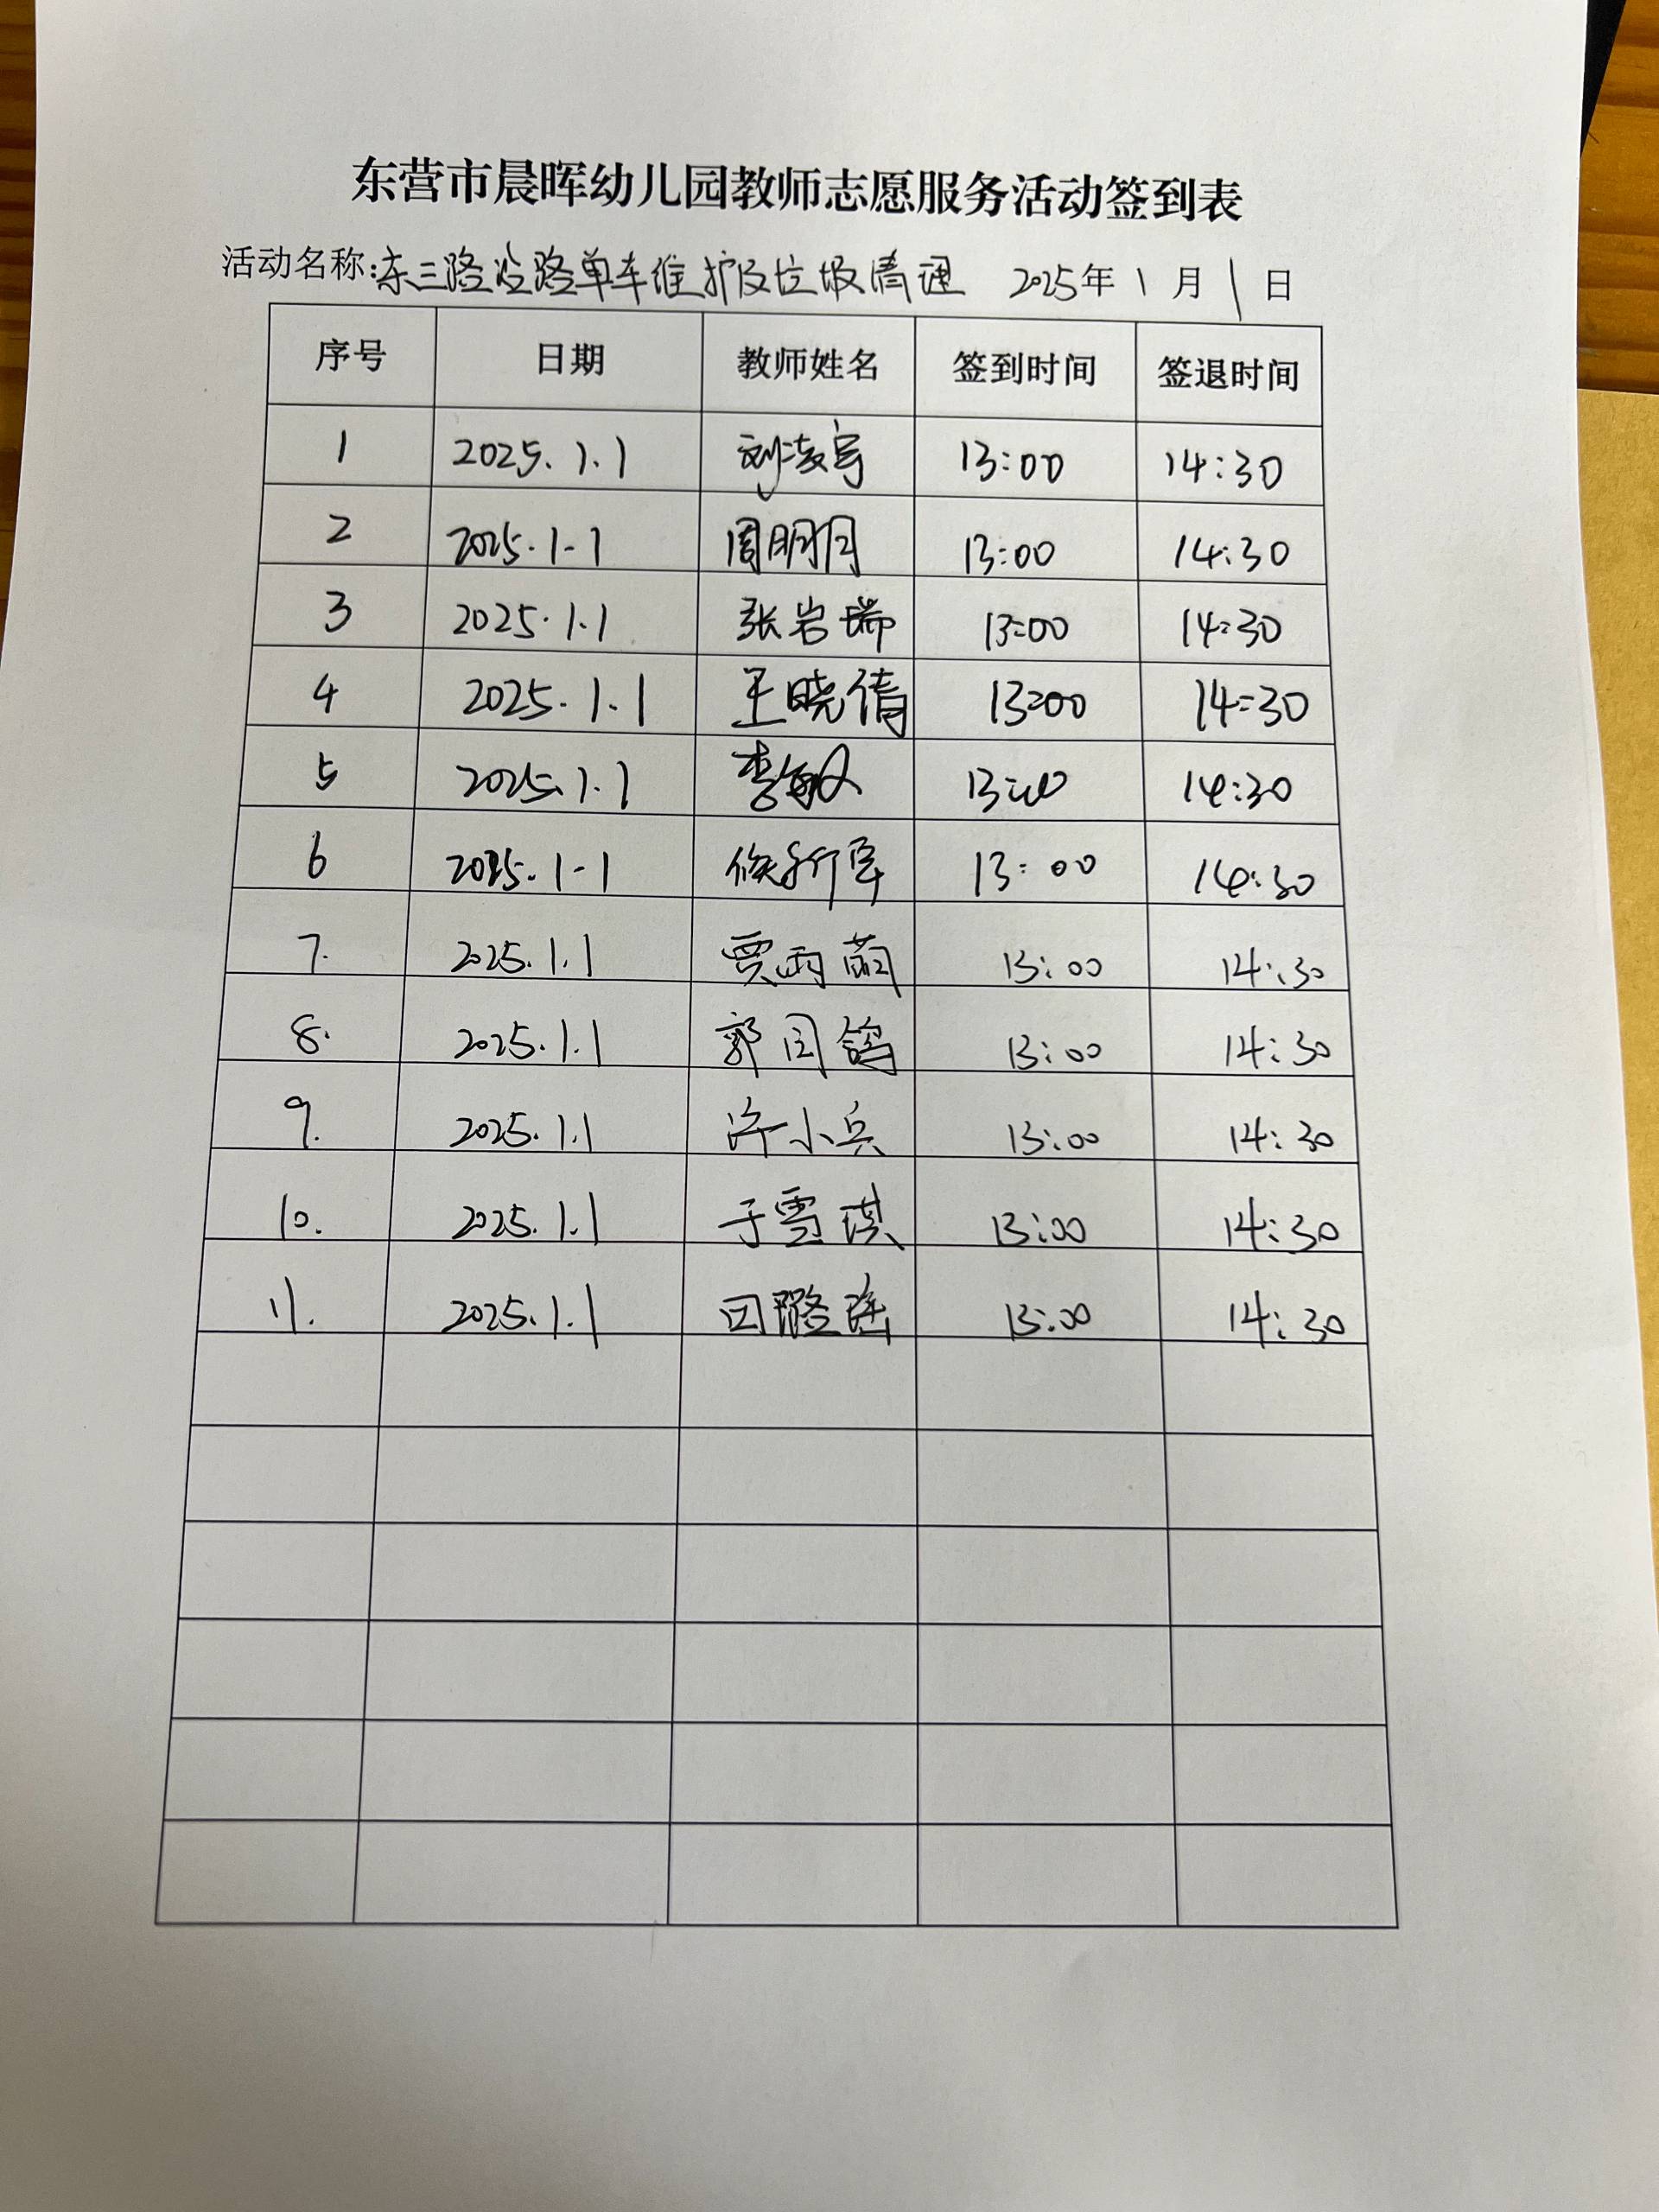 东营市晨晖幼儿园教师志愿服务活动签到表
活动名称:东三路沿路单车维护及垃圾清理 2025年1月1日
序号 日期 教师姓名 签到时间 签退时间
1 2025.1.1 刘凌宇 13:00 14:30
2 2025.1.1 周明月 13:00 14:30
3 2025.1.1 张岩瑞 13:00 14:30
4 2025.1.1 王晓倩 13:00 14:30
5 2025.1.1 李敏 13:00 14:30
6 2025.1.1 13:00 14:30
7. 2025.1.1 贾雨萌 13:00 14:30
8. 2025.1.1 郭囝鸽 13:00 14:30
9. 2025.1.1 许小兵 13:00 14:30
10. 2025.1.1 于雪琪 13:00 14:30
11. 2025.1.1 田璐瑶 13:00 14:30